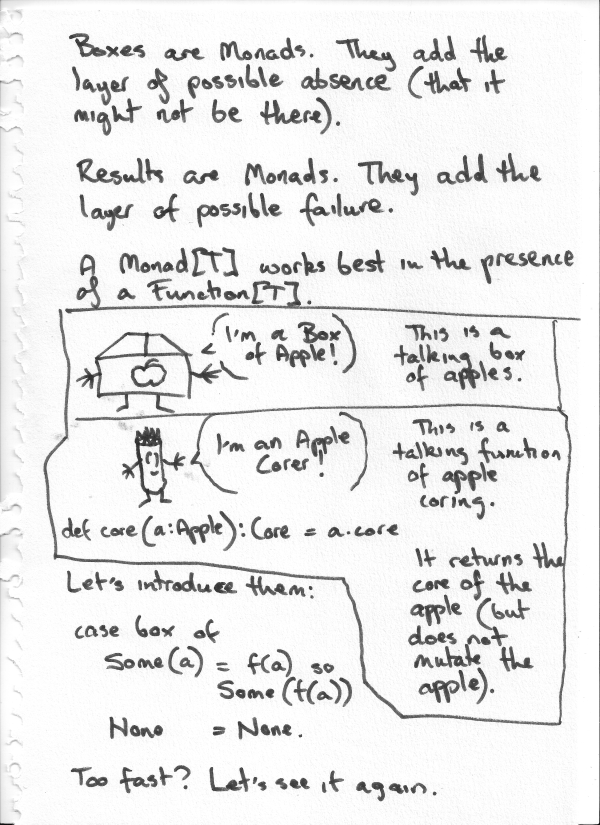 Boxes are Monads. They add the
layer of possible absence (that it
might not be there).
Results are Monads. They add the
layer of possible failure.
A Monad[T] works best in the presence
of a Function[T].
I'm a Box
of Apple!
This is a
talking box
of apples.
I'm an Apple
Corer!
This is a
talking function
of apple
coring.
def core(a:Apple): Core = a.core
It returns the
core of the
apple (but
does not
mutate the
apple).
Let's introduce them:
case box of
Some(a) = f(a) so
Some(f(a))
None = None.
Too fast? Let's see it again.